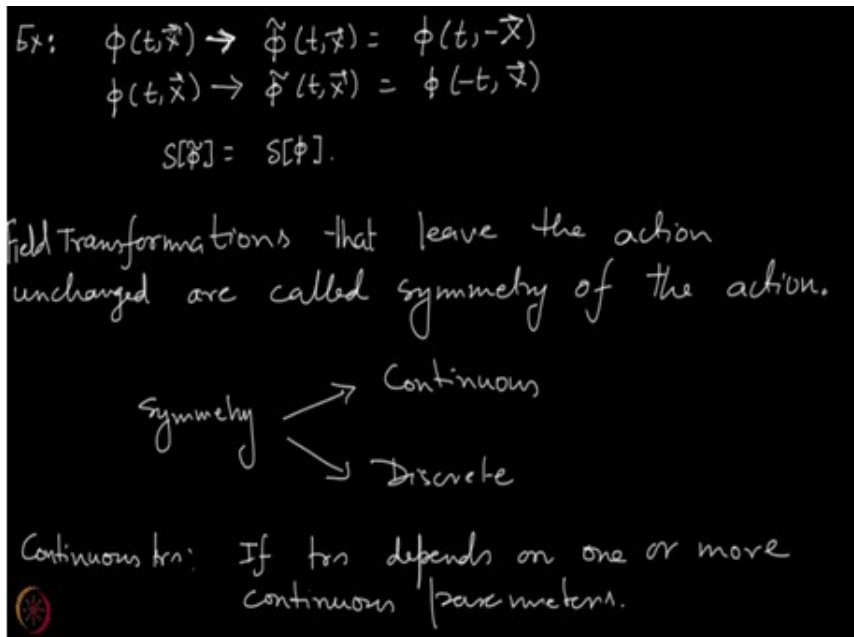 Ex: ϕ(t,x⃗) → ϕ̃(t,x⃗) = ϕ(t,-x⃗)
ϕ(t,x⃗) → ϕ̃(t,x⃗) = ϕ(-t,x⃗)
S[ϕ̃] = S[ϕ].
Field Transformations that leave the action
unchanged are called symmetry of the action.
Continuous
Symmetry
Discrete
Continuous trn: If trn depends on one or more
continuous parameters.